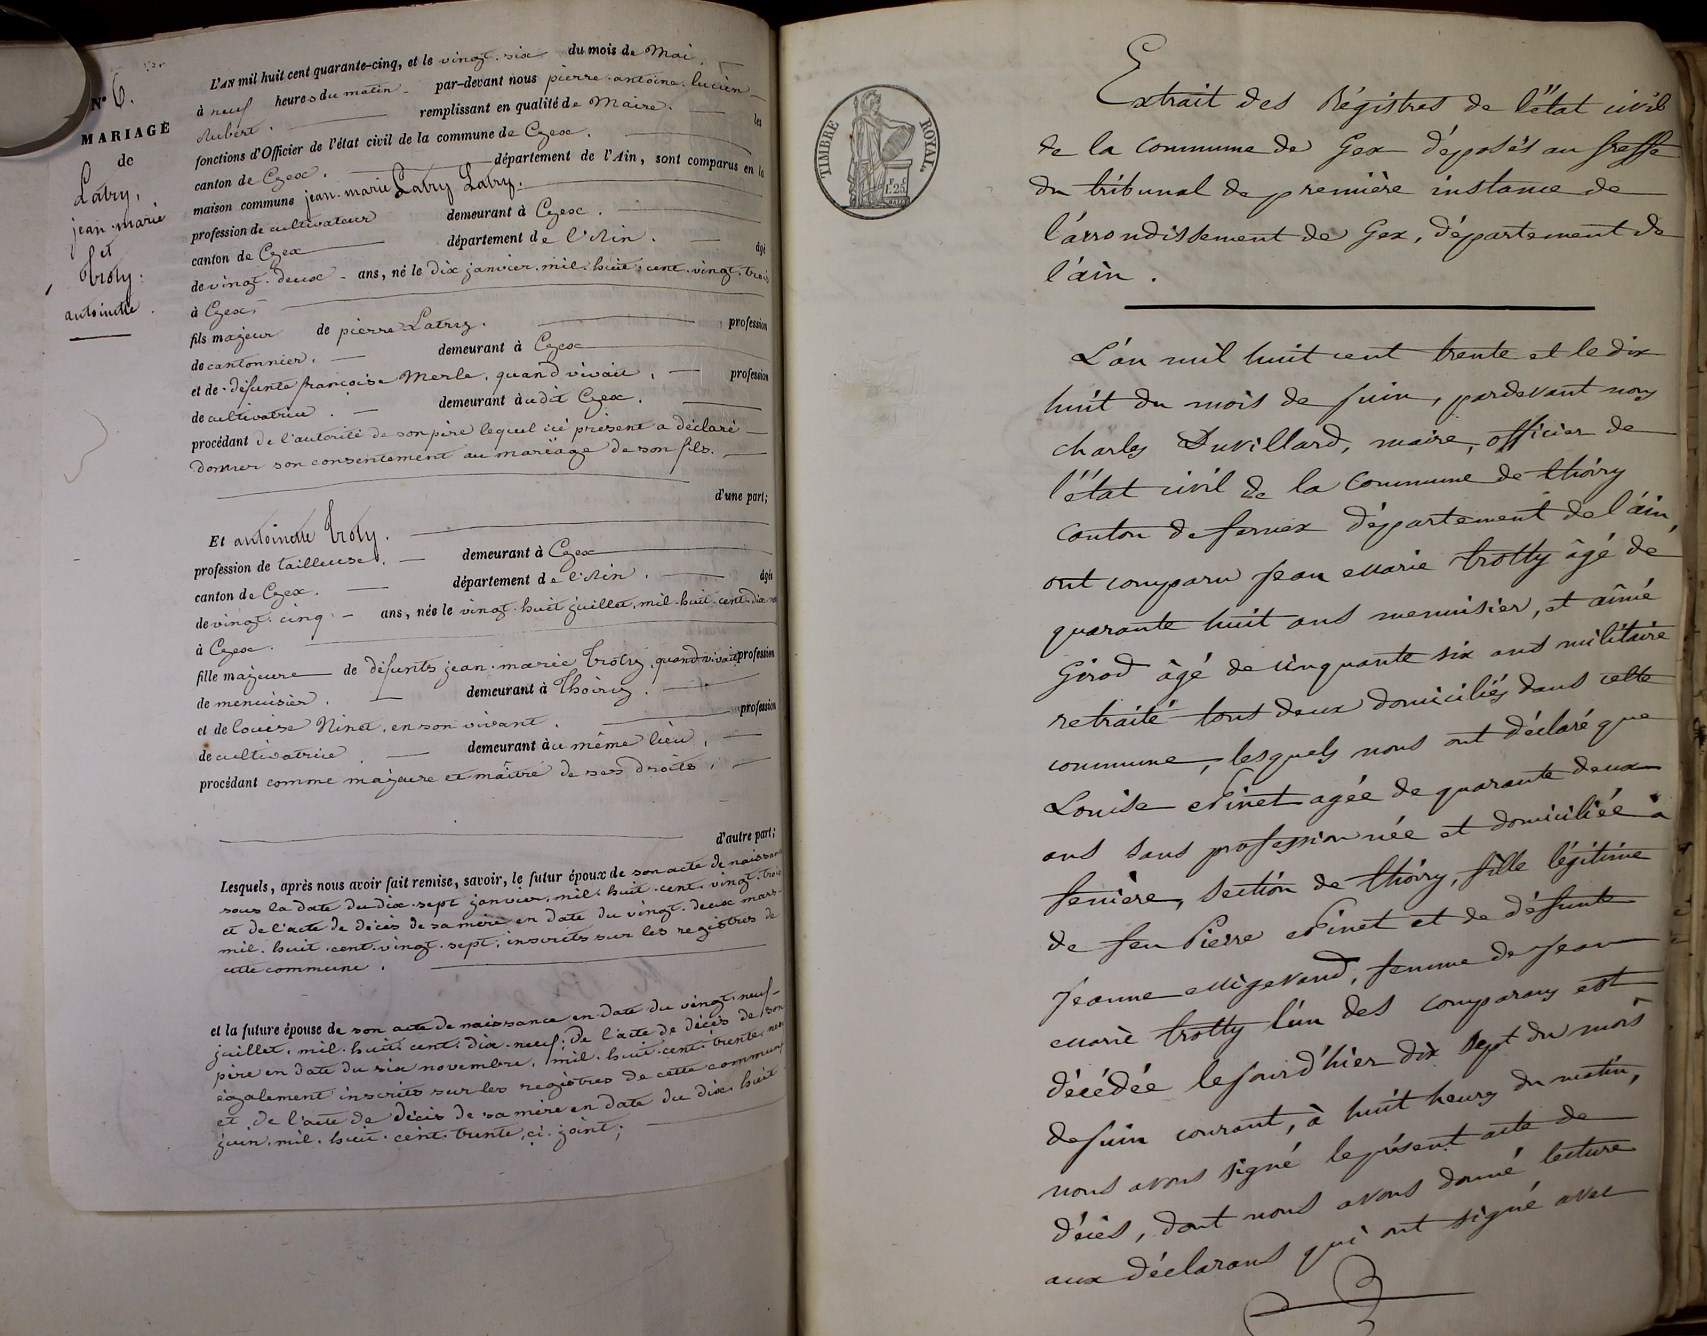 N° 6.
MARIAGE
de
Latry,
jean-marie
et
troty.
antoinette.
L'AN mil huit cent quarante-cinq, et le vingt-six du mois de Mai,
à neuf heures du matin par-devant nous pierre-antoine-lucien
remplissant en qualité de Maire. les
fonctions d'Officier de l'état civil de la commune de Gex.
canton de Gex. département de l'Ain, sont comparus en la
maison commune jean-marie Latry Latry.
profession de cultivateur demeurant à Gex.
canton de Gex département de l'Ain. âgé
de vingt-deux ans, né le dix janvier mil huit cent vingt-trois
à Gex
fils majeur de pierre Latry. profession
de cantonnier. demeurant à Gex
et de défunte françoise Merle, quand vivait, profession
de cultivatrice. demeurant àudit Gex.
procédant de l'autorité de son père lequel ici présent a déclaré
donner son consentement au mariage de son fils.
d'une part;
Et antoinette troty.
profession de tailleuse. demeurant à Gex
canton de Gex. département de l'Ain. âgée
de vingt-cinq ans, née le vingt-huit juillet mil huit cent dix
à Gex.
fille majeure de défunts jean-marie troty, quand vivait profession
de menuisier. demeurant à Thoiry.
et de louise Ninet, en son vivant. profession
de cultivatrice demeurant àu même lieu,
procédant comme majeure et maître de ses droits;
d'autre part;
Lesquels, après nous avoir fait remise, savoir, le futur époux de son acte de naissance
sous la date du dix-sept janvier mil huit cent vingt-trois
et de l'acte de décès de sa mère en date du vingt-deux mars
mil huit cent vingt-sept, inscrits sur les registres de
cette commune.
et la future épouse de son acte de naissance en date du vingt-neuf
juillet mil huit cent dix-neuf; de l'acte de décès de son
père en date du six novembre mil huit cent trente
également inscrits sur les registres de cette commune
et de l'acte de décès de sa mère en date du dix-huit
juin mil huit cent trente, ci-joint;
TIMBRE ROYAL
1F 25
Extrait des Régistres de l'état civil
de la commune de Gex déposés au greffe
du tribunal de première instance de
l'arrondissement de Gex, département de
l'ain.
L'an mil huit cent trente et le dix
huit du mois de juin, pardevant nous
charles Duvillard, maire, officier de
l'état civil de la commune de thoiry
canton de fernex département de l'ain,
ont comparu jean marie trotty âgé de
quarante huit ans menuisier, et aimé
Girod âgé de cinquante six ans militaire
retraité tous deux domiciliés dans cette
commune, lesquels nous ont déclaré que
Louise Ninet agée de quarante deux
ans sans profession née et domiciliée à
feniere, section de thoiry, fille légitime
de feu Pierre Ninet et de défunte
jeanne Migevand, femme de jean
marie trotty l'un des comparans est
décédée le jourd'hier dix sept du mois
de juin courant, à huit heures du matin,
nous avons signé le présent acte de
décès, dont nous avons donné lecture
aux déclarans qui ont signé avec